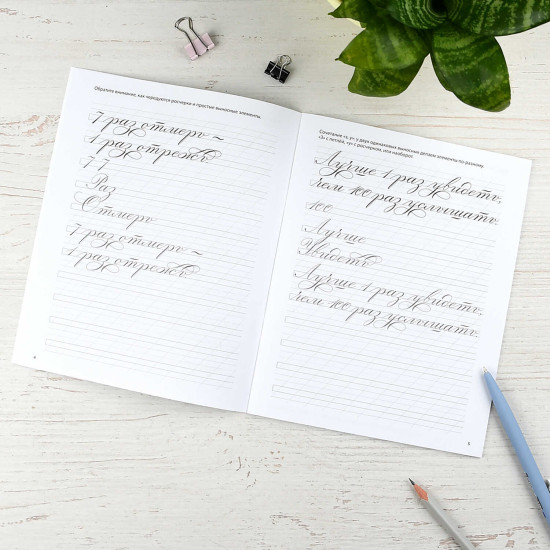 Обратите внимание, как чередуются росчерки и простые выносные элементы.
7 раз отмерь ~
1 раз отрежь.
7 7
Раз
Отмерь
7 раз отмерь ~
1 раз отрежь.
Сочетание «з, у»: у двух одинаковых выносных делаем элементы по-разному.
«З» с петлёй, «у» с росчерком, или наоборот.
Лучше 1 раз увидеть,
чем 100 раз услышать.
100
Лучше
Увидеть
Лучше 1 раз увидеть,
чем 100 раз услышать.